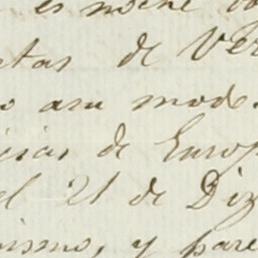 es noche
tas de Ver
o asu modo.
icias de Europ
el 21 de Diz
mismo, y pare